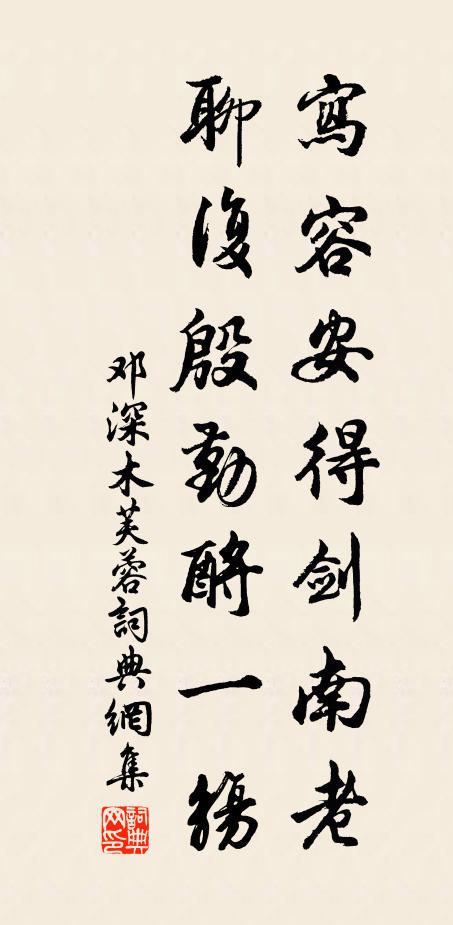 寫容安得剑南老
聊復殷勤酹一觴
邓深木芙蓉詞典網集
詞典网印